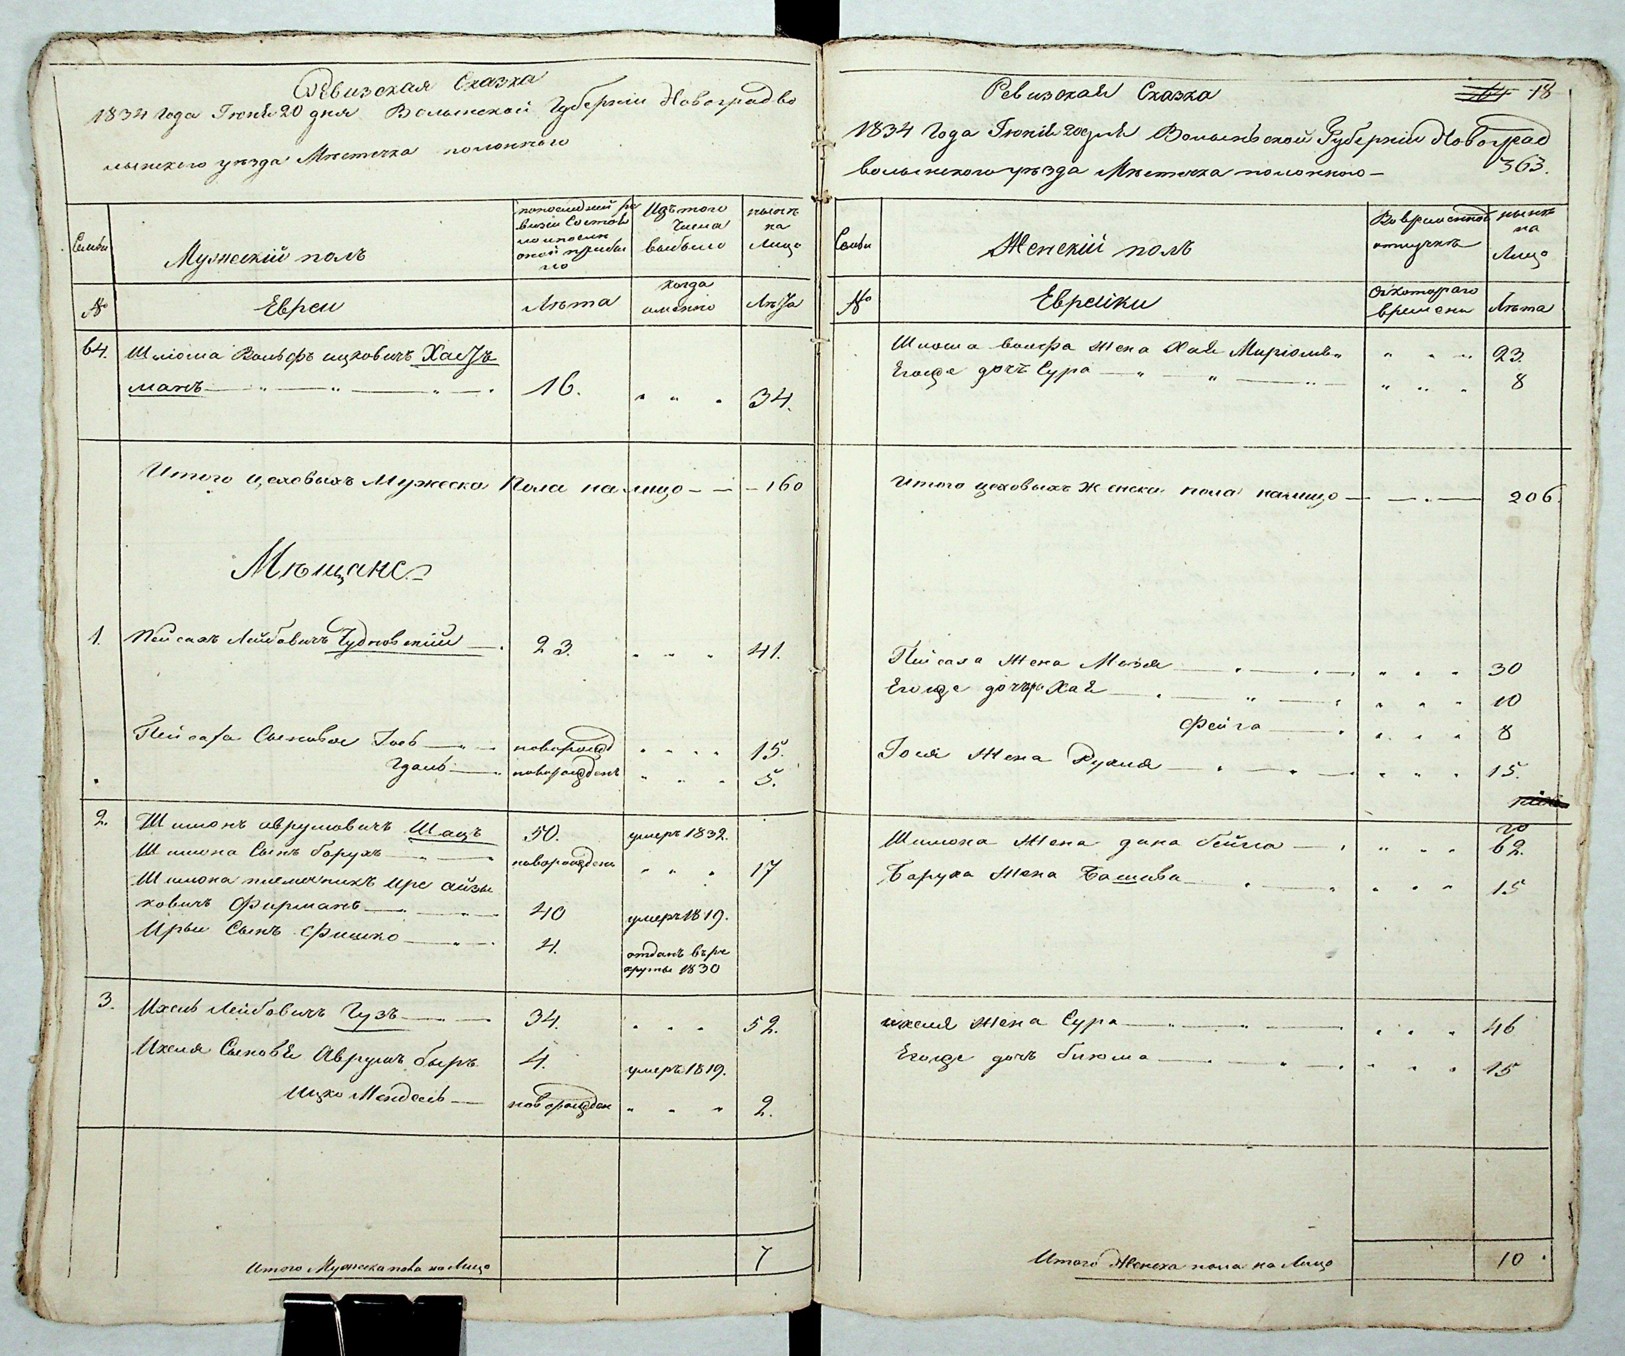 Ревизская Сказка
1834 года Іюня 20 дня Волынской Губерніи Новоградво
лынского уѣзда Мѣстечка полонного
Семьи
Мужескій полъ
по последней ре
визіи Состоя
ло и после
оной прибы
ло
Изъ того
Числа
выбыло
нынѣ
на
Лицо
№
Евреи
Лѣта
когда
именно
Лѣта
64.
Шліома Вольфъ ицковичъ Хаз
манъ
16.
34.
Итого цеховыхъ Мужеска Пола на лицо 160
Мѣщане
1. Пейсахъ Лейбовичъ Чудновскій 23. 41.
Пейсаха Сыновья Іось новорожд 15.
Гдаль новорожденъ 5.
2. Шимонъ аврумовичъ Шацъ 50. умеръ 1832.
Шимона Сынъ борухъ новорожденъ 17
Шимона племеникъ ирс айзы
ковичъ Фирманъ 40 умеръ 1819.
Ирьи Сынъ Фишко 4. отданъ въ ре
круты 1830
3. Ихель Лейбовичъ Гузъ 34. 52.
Ихеля Сыновья Аврумъ беръ 4. умеръ 1819.
Ицко Мендель новорожден 2.
Итого Мужеска пола на Лицо 7
Ревизская Сказка
18
1834 Года Іюня 20 дня Волыньской Губерніи Новоград
волынского уѣзда Мѣстечка полонного
363.
Семьи
Женскій полъ
Во временной
отлучкѣ
нынѣ
на
Лицо
№
Еврейки
Съ котораго
времени
Лѣта
Шліома вольфа Жена Хая Миріомъ 23.
Егожде дочъ Сура 8
Итого цеховыхъ Женска пола на лицо 206.
Пейсаха Жена Мозя 30
Егожде дочъри Хая 10
Фейга 8
Іося Жена Рухля 15.
Шимона Жена дина бейла 62.
Боруха Жена Башива 15
ихеля Жена Сура 46
Егожде дочъ биюма 15
Итого Женска пола на Лицо 10